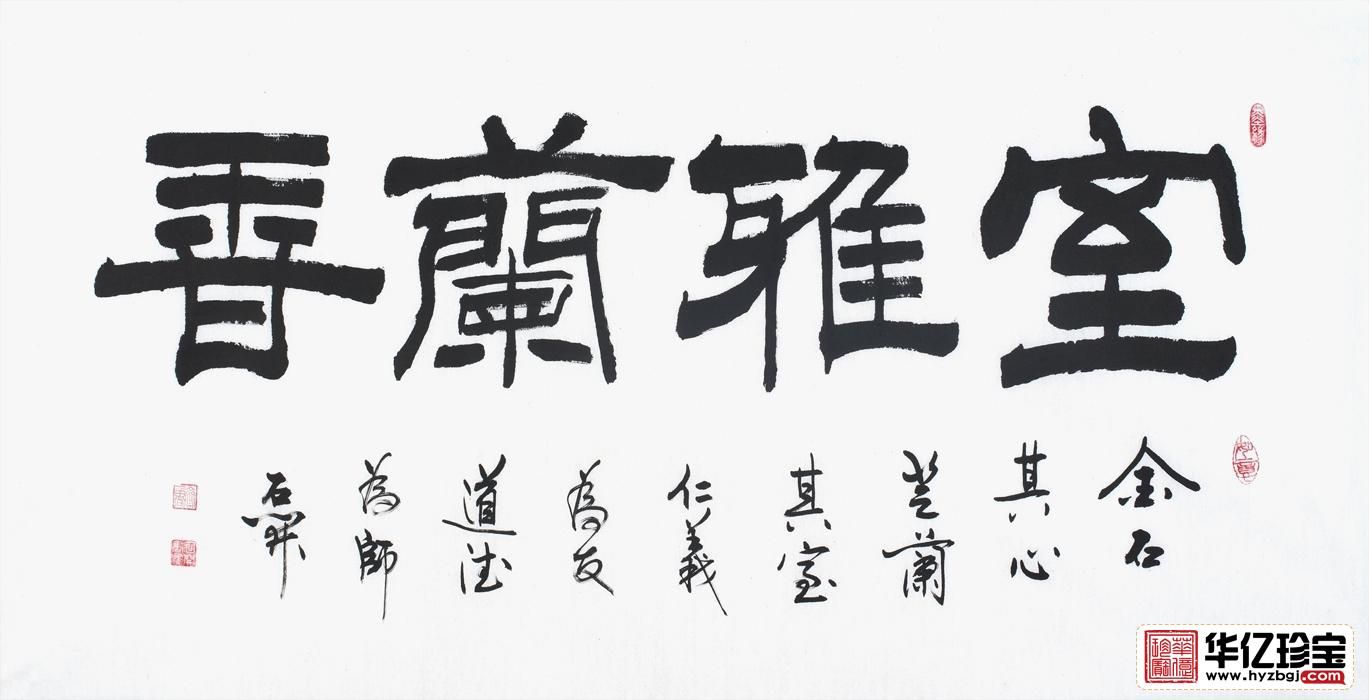 室雅蘭香
金石
其心
芝蘭
其室
仁義
為友
道德
為師
華億珍寶
华亿珍宝
www.hyzbgj.com